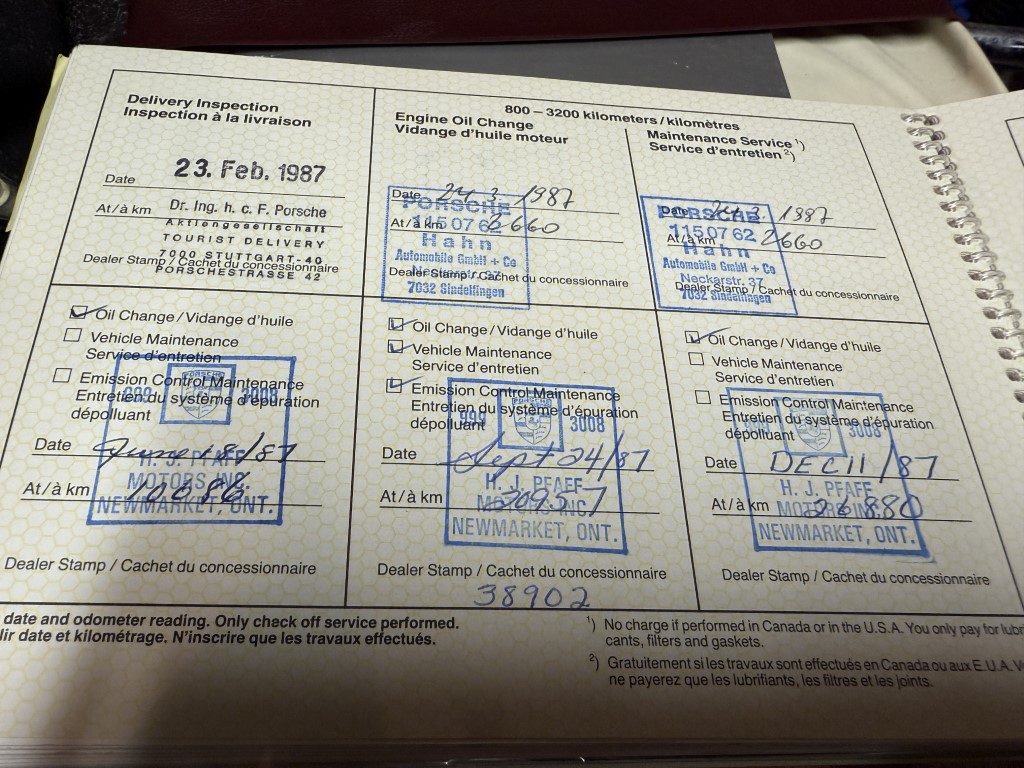 Delivery Inspection
Inspection à la livraison
Date 23. Feb. 1987
At/à km
Dr. Ing. h. c. F. Porsche
Aktiengesellschaft
TOURIST DELIVERY
7000 STUTTGART-40
Dealer Stamp / Cachet du concessionnaire
PORSCHESTRASE 42
800 – 3200 kilometers / kilomètres
Engine Oil Change
Vidange d'huile moteur
Date 24 3. 1987
PORSCHE
At/à km 2660
115 07 62
Hahn
Automobile GmbH + Co
Neckarstr. 37
Dealer Stamp / Cachet du concessionnaire
7032 Sindelfingen
Maintenance Service ¹)
Service d'entretien ²)
Date 24 3. 1987
PORSCHE
115 07 62
At/à km 2660
Hahn
Automobile GmbH + Co
Neckarstr. 37
Dealer Stamp / Cachet du concessionnaire
7032 Sindelfingen
Oil Change / Vidange d'huile
Vehicle Maintenance
Service d'entretien
Emission Control Maintenance
Entretien du système d'épuration
dépolluant
PORSCHE
999 3008
Date June 18/87
H. J. PFAFF
MOTORS INC.
At/à km
NEWMARKET, ONT.
Dealer Stamp / Cachet du concessionnaire
Oil Change / Vidange d'huile
Vehicle Maintenance
Service d'entretien
Emission Control Maintenance
Entretien du système d'épuration
dépolluant
PORSCHE
999 3008
Date Sept 24/87
H. J. PFAFF
At/à km
MOTORS INC.
NEWMARKET, ONT.
Dealer Stamp / Cachet du concessionnaire
38902
Oil Change / Vidange d'huile
Vehicle Maintenance
Service d'entretien
Emission Control Maintenance
Entretien du système d'épuration
dépolluant
999 3008
Date DEC 11/87
H. J. PFAFF
At/à km 26880
MOTORS INC.
NEWMARKET, ONT.
Dealer Stamp / Cachet du concessionnaire
date and odometer reading. Only check off service performed.
lir date et kilométrage. N'inscrire que les travaux effectués.
¹) No charge if performed in Canada or in the U.S.A. You only pay for lubri
cants, filters and gaskets.
²) Gratuitement si les travaux sont effectués en Canada ou aux E.U.A. V
ne payerez que les lubrifiants, les filtres et les joints.